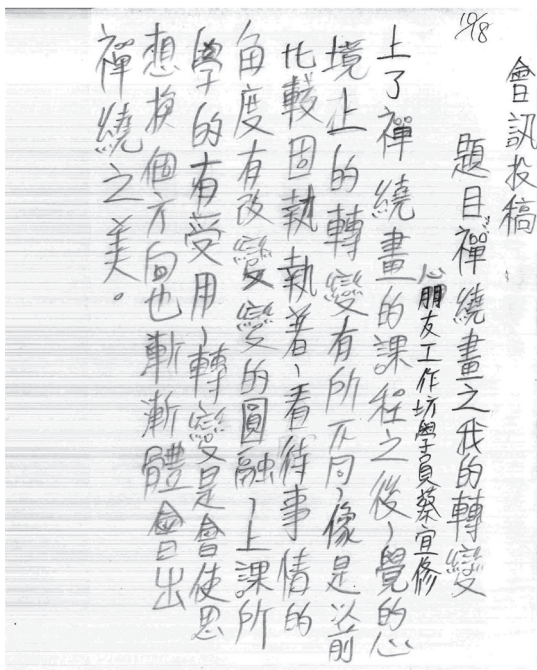 10/8
會訊投稿
題目:禪繞畫之我的轉變
心朋友工作坊學員蔡宜修
上了禪繞畫的課程之後,覺的心
境上的轉變有所不同,像是以前
比較固執執著,看待事情的
角度有改變變的圓融,上課所
學的有受用,轉變是會使思
想換個方向也漸漸體會出
禪繞之美。